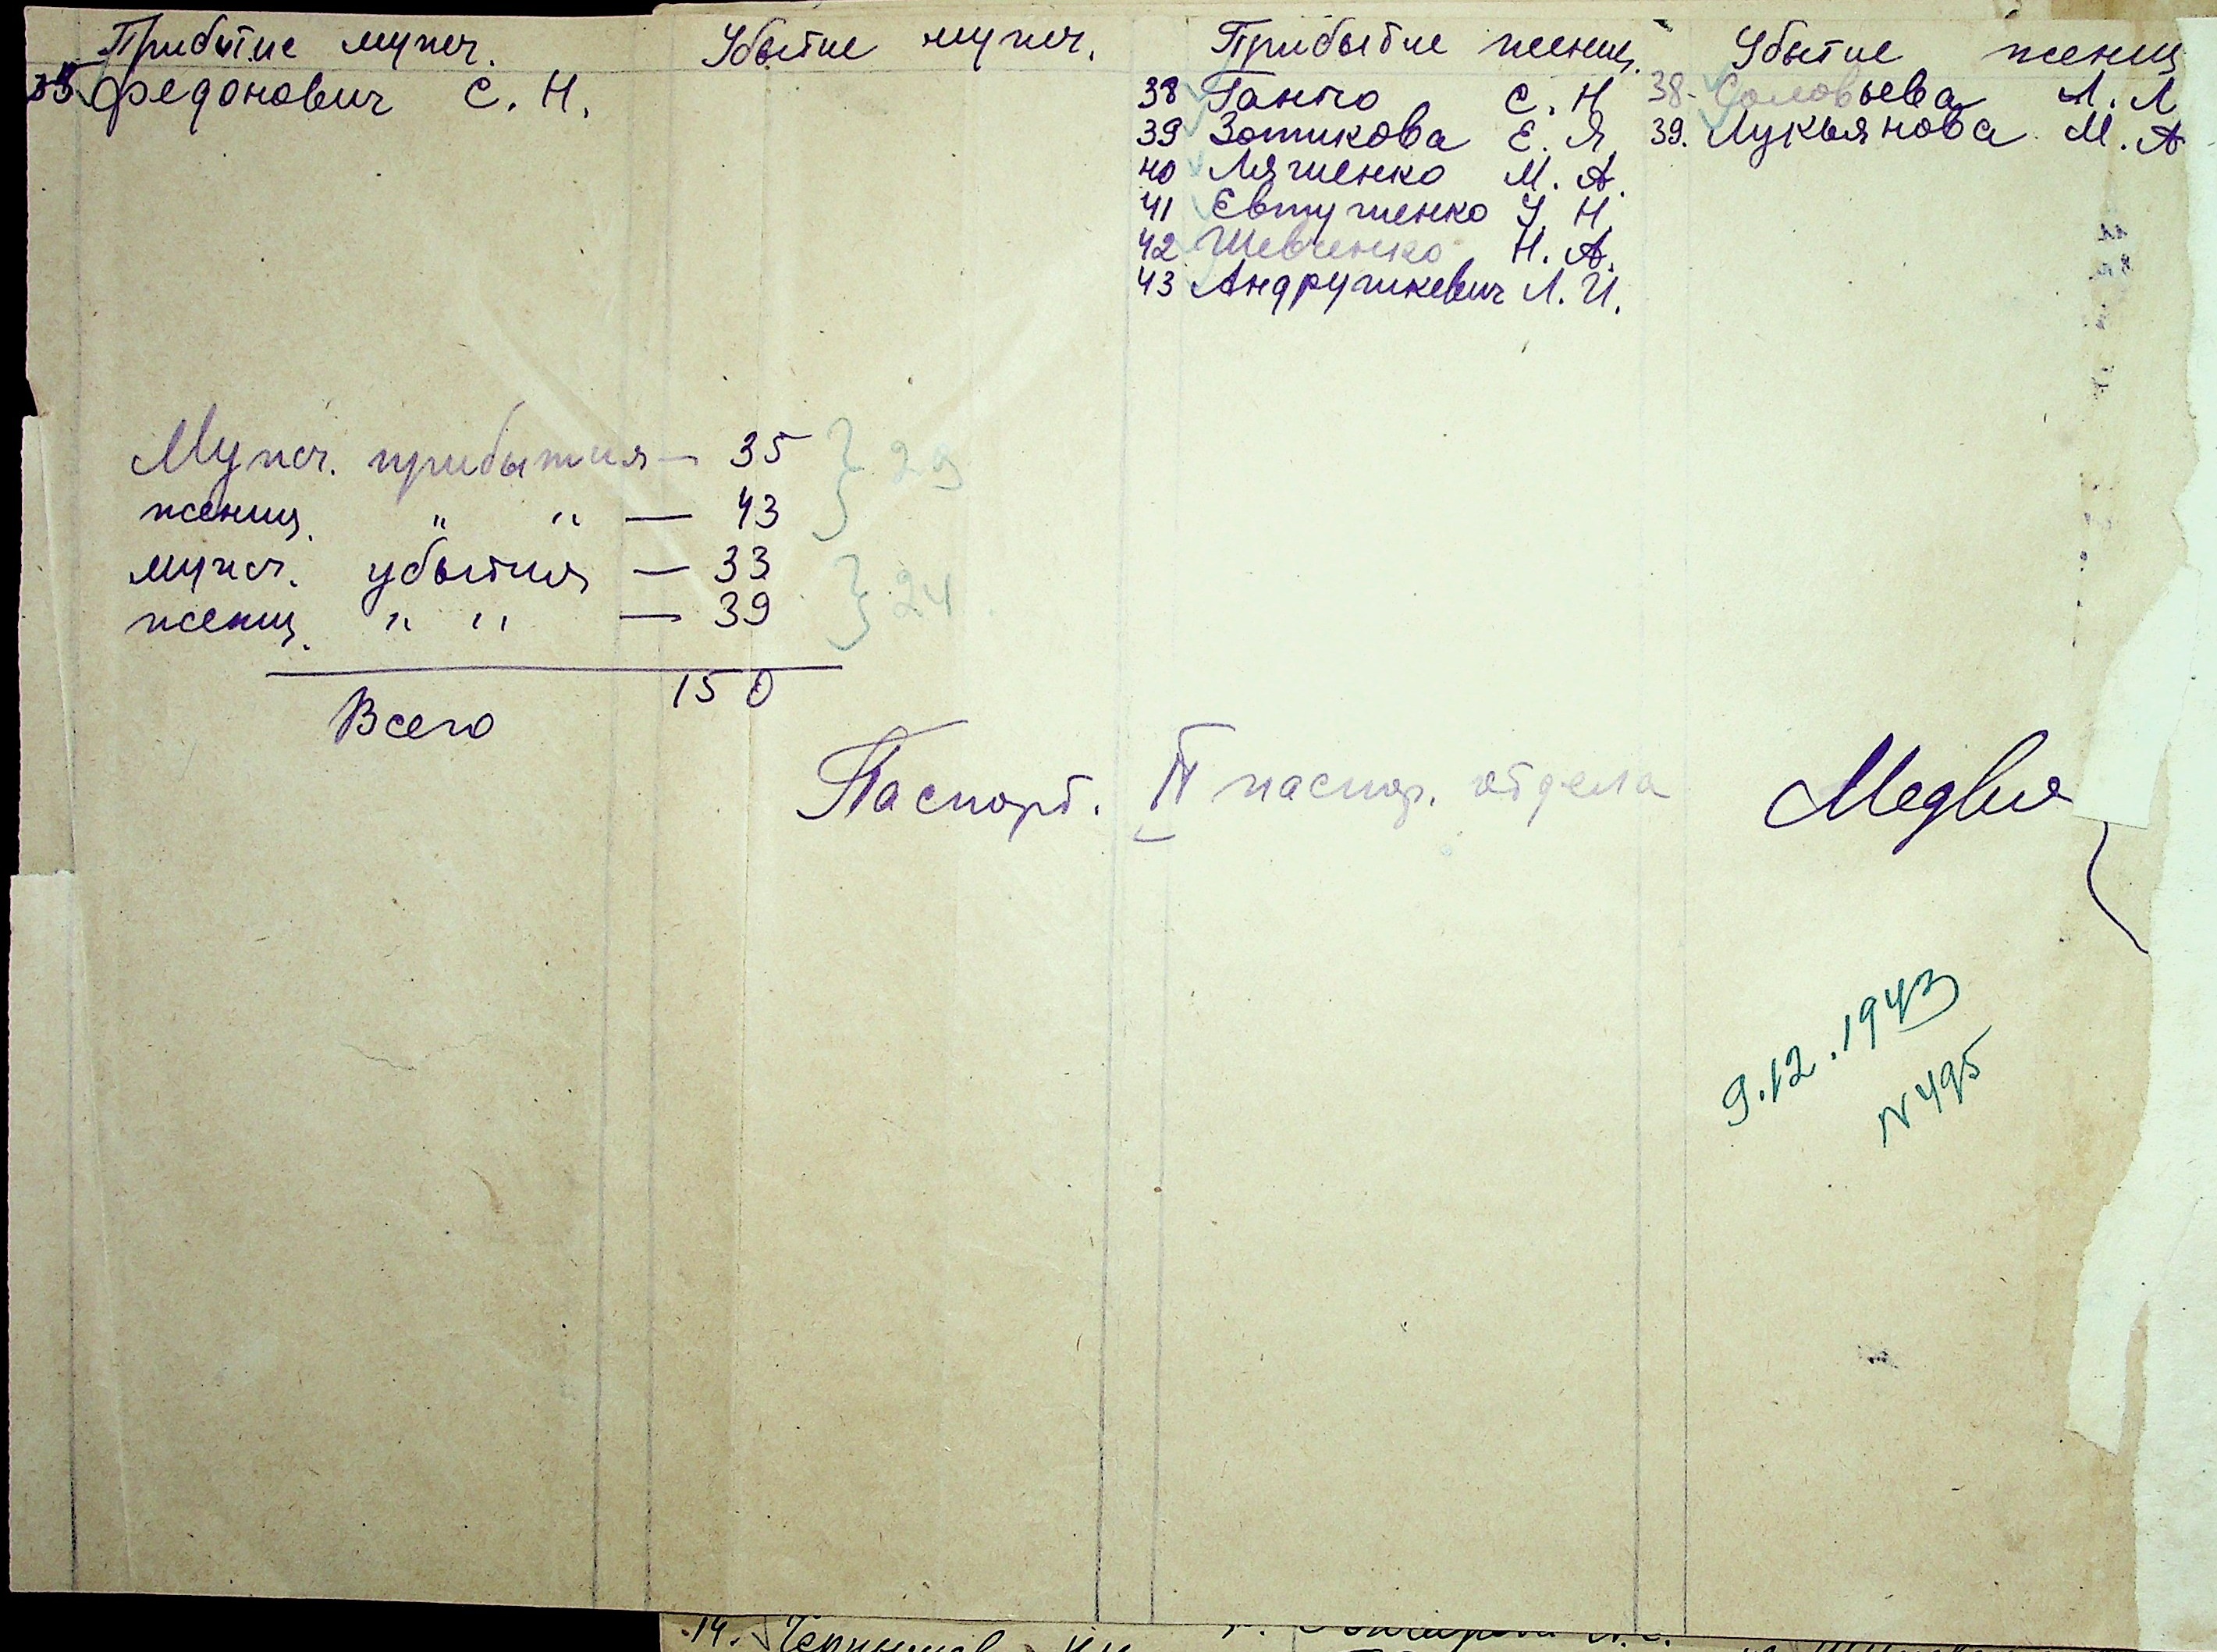 Прибытие мужч. Убытие мужч. Прибытие женщ. Убытие женщ
35 Федонович С. Н. 38 Ганто С. Н 38- Соловьева А. Л
39 Зотикова Е. Я. 39. Лукьянова М. А
40 Ляшенко М. А.
41 Евтушенко У. Н.
42 Шевченко Н. А.
43 Андрушкевич Л. И.
Мужч. прибытия — 35 } 29
женщ. " " — 43
мужч. убытия — 33 } 24
женщ. " " — 39
Всего 150
Паспорт. II паспор. отдела
9.12.1943
N 495
14.